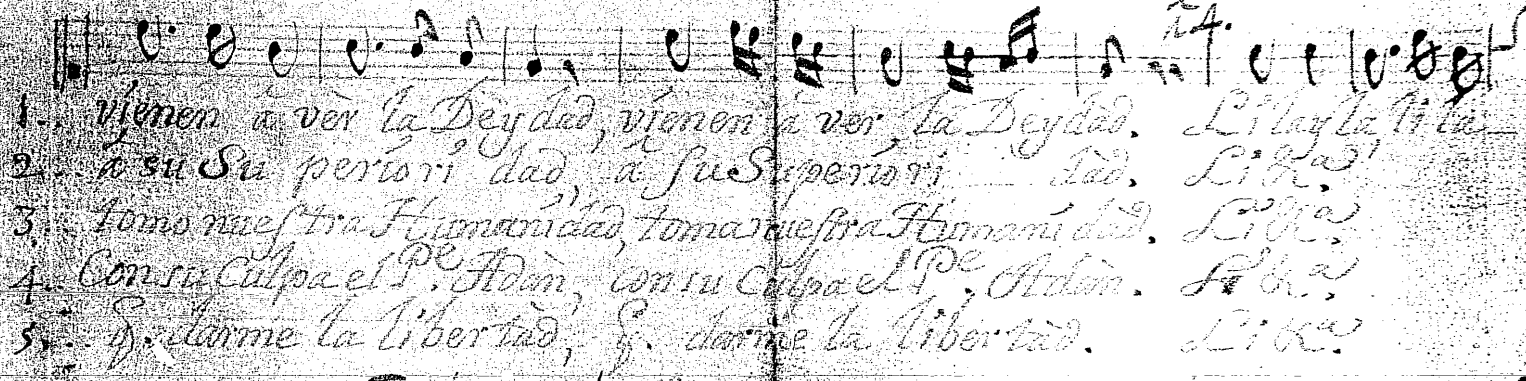 à 4.
1.. vienen á vèr la Deydad, vienen á ver la Deydad. Li lay la li la
2.. a su Superiori dad, a su Superiori dad. Li Rª,
3.. tomo nuestra Humanidad, toma nuestra Humani dad. Li Rª,
4.. Con su Culpa el Pe. Adàn, con su Culpa el Pe. Adàn. Li Rª,
5.. darme la libertàd, darme la libertàd. Li Rª.